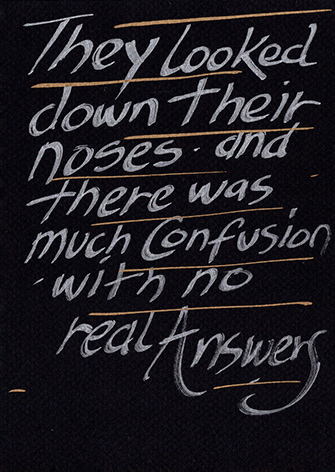 They looked
down their
noses. and
there was
much Confusion
with no
real Answers